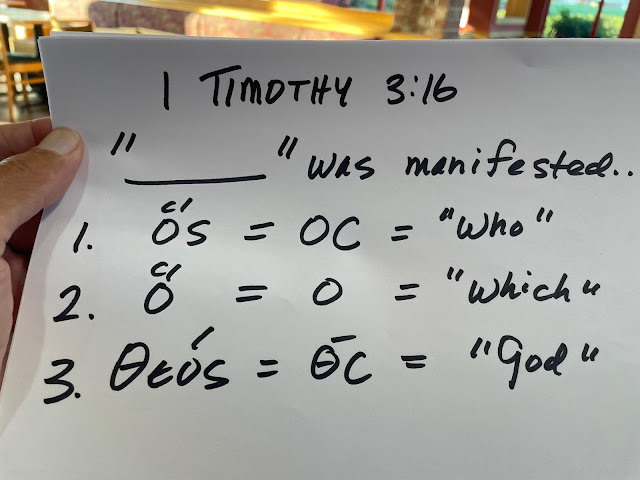 1 TIMOTHY 3:16
"________" was manifested..
1. ὅς = OC = "Who"
2. ὅ = O = "Which"
3. Θεός = Θ̅C = "God"